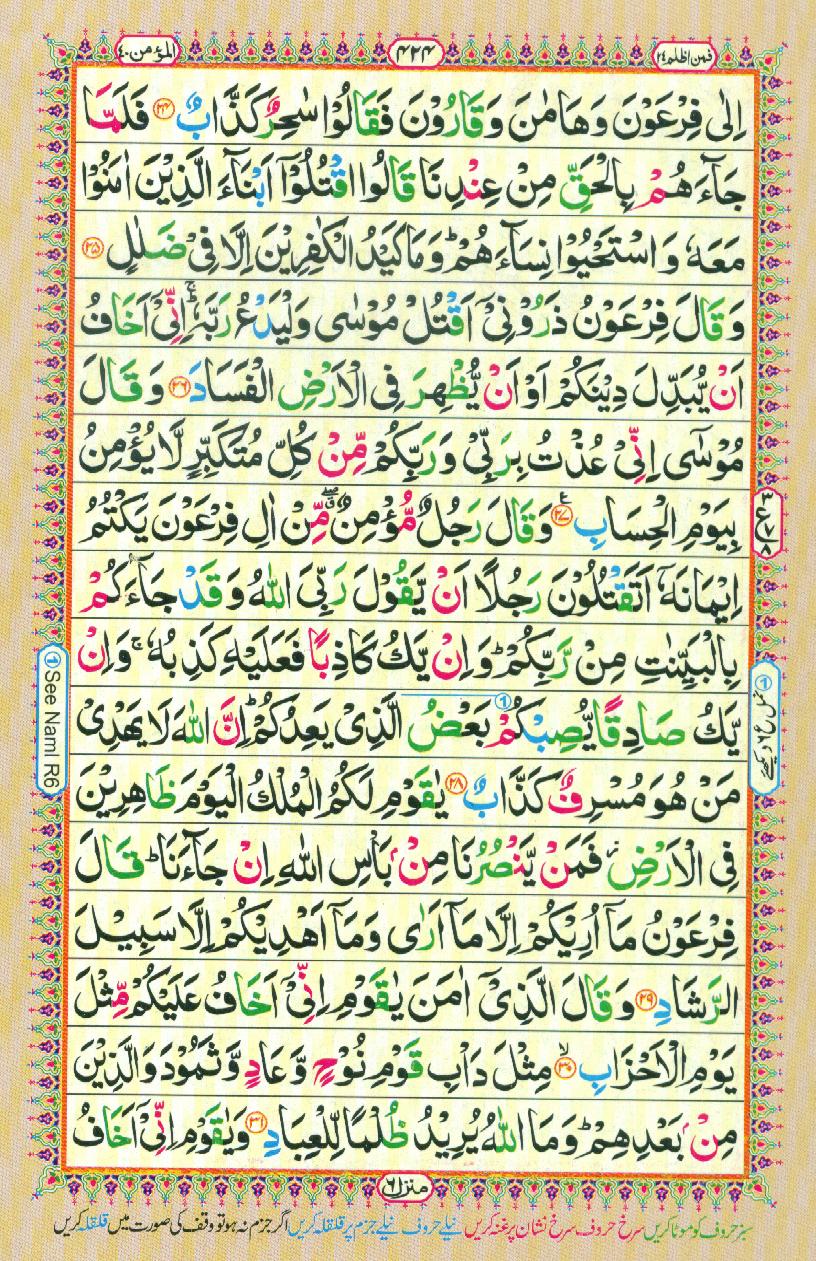 المؤمن ٤٠
٤٢٤
فمن اظلم ٢٤
اِلٰى فِرْعَوْنَ وَهَامٰنَ وَقَارُوْنَ فَقَالُوْا سٰحِرٌ كَذَّابٌ ﴿۲۴﴾ فَلَمَّا
جَآءَهُمْ بِالْحَقِّ مِنْ عِنْدِنَا قَالُوا اقْتُلُوْٓا اَبْنَآءَ الَّذِيْنَ اٰمَنُوْا
مَعَهٗ وَاسْتَحْيُوْا نِسَآءَهُمْ ؕ وَمَا كَيْدُ الْكٰفِرِيْنَ اِلَّا فِيْ ضَلٰلٍ ﴿۲۵﴾
وَقَالَ فِرْعَوْنُ ذَرُوْنِيْٓ اَقْتُلْ مُوْسٰى وَلْيَدْعُ رَبَّهٗ ۚ اِنِّيْٓ اَخَافُ
اَنْ يُّبَدِّلَ دِيْنَكُمْ اَوْ اَنْ يُّظْهِرَ فِى الْاَرْضِ الْفَسَادَ ﴿۲۶﴾ وَقَالَ
مُوْسٰٓى اِنِّيْ عُذْتُ بِرَبِّيْ وَرَبِّكُمْ مِّنْ كُلِّ مُتَكَبِّرٍ لَّا يُؤْمِنُ
بِيَوْمِ الْحِسَابِ ﴿۲۷﴾ ع وَقَالَ رَجُلٌ مُّؤْمِنٌ ۖ ق مِّنْ اٰلِ فِرْعَوْنَ يَكْتُمُ
اِيْمَانَهٗٓ اَتَقْتُلُوْنَ رَجُلًا اَنْ يَّقُوْلَ رَبِّيَ اللّٰهُ وَقَدْ جَآءَكُمْ
بِالْبَيِّنٰتِ مِنْ رَّبِّكُمْ ؕ وَاِنْ يَّكُ كَاذِبًا فَعَلَيْهِ كَذِبُهٗ ۚ وَاِنْ
يَّكُ صَادِقًا يُّصِبْكُمْ ① بَعْضُ الَّذِيْ يَعِدُكُمْ ؕ اِنَّ اللّٰهَ لَا يَهْدِيْ
مَنْ هُوَ مُسْرِفٌ كَذَّابٌ ﴿۲۸﴾ يٰقَوْمِ لَكُمُ الْمُلْكُ الْيَوْمَ ظَاهِرِيْنَ
فِى الْاَرْضِ ز فَمَنْ يَّنْصُرُنَا مِنْۢ بَاْسِ اللّٰهِ اِنْ جَآءَنَا ؕ قَالَ
فِرْعَوْنُ مَآ اُرِيْكُمْ اِلَّا مَآ اَرٰى وَمَآ اَهْدِيْكُمْ اِلَّا سَبِيْلَ
الرَّشَادِ ﴿۲۹﴾ وَقَالَ الَّذِيْٓ اٰمَنَ يٰقَوْمِ اِنِّيْٓ اَخَافُ عَلَيْكُمْ مِّثْلَ
يَوْمِ الْاَحْزَابِ ﴿۳۰﴾ ۙ مِثْلَ دَاْبِ قَوْمِ نُوْحٍ وَّعَادٍ وَّثَمُوْدَ وَالَّذِيْنَ
مِنْۢ بَعْدِهِمْ ؕ وَمَا اللّٰهُ يُرِيْدُ ظُلْمًا لِّلْعِبَادِ ﴿۳۱﴾ وَيٰقَوْمِ اِنِّيْٓ اَخَافُ
① See Naml R6
منزل ٦
سبز حروف کو موٹا کریں سرخ حروف سرخ نشان پر غنہ کریں نیلے حروف نیلے جزم پر قلقلہ کریں اگر جزم نہ ہو تو وقف کی صورت میں قلقلہ کریں